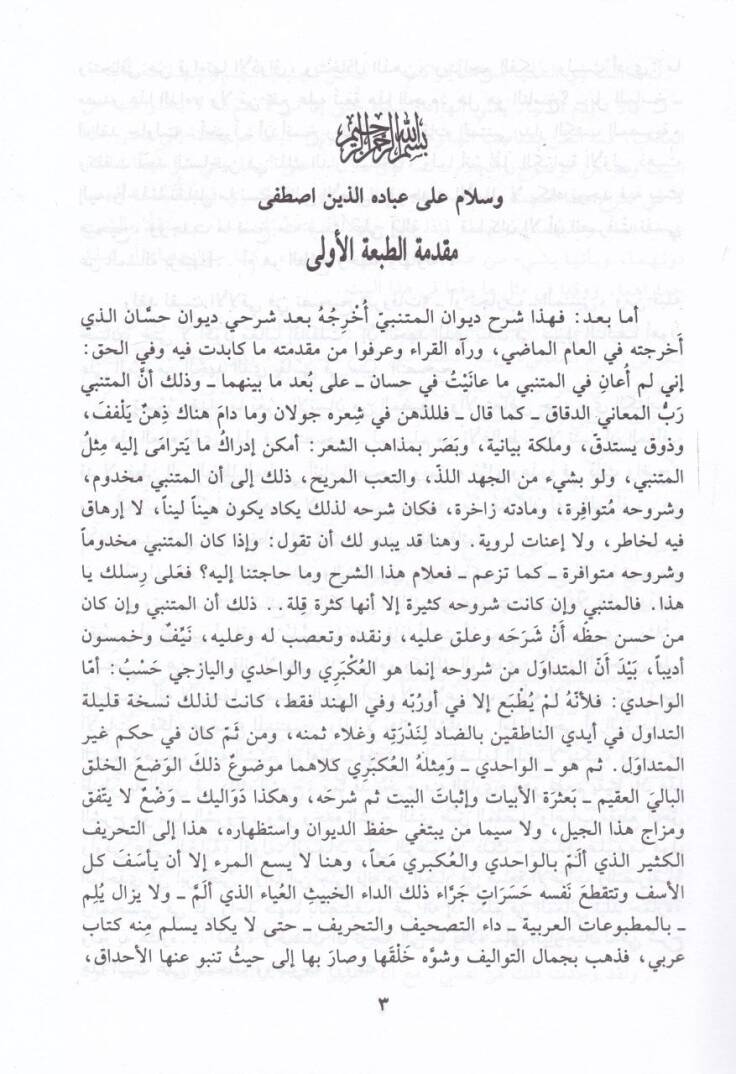 بسم الله الرحمن الرحيم
وسلام على عباده الذين اصطفى
مقدمة الطبعة الأولى
أما بعد: فهذا شرح ديوان المتنبيّ أُخْرِجُهُ بعد شرحي ديوان حسَّان الذي
أخرجته في العام الماضي، ورآه القراء وعرفوا من مقدمته ما كابدت فيه وفي الحق:
إني لم أُعانِ في المتنبي ما عانَيْتُ في حسان ــ على بُعد ما بينهما ــ وذلك أنَّ المتنبي
رَبُّ المعاني الدقاق ــ كما قال ــ فللذهن في شِعره جولان وما دامَ هناك ذِهنٌ يَلْففَ،
وذوق يستدقّ، وملكة بيانية، وبَصَر بمذاهب الشعر: أمكن إدراكُ ما يَترامَى إليه مِثلُ
المتنبي، ولو بشيء من الجهد اللذّ، والتعب المريح، ذلك إلى أن المتنبي مخدوم،
وشروحه مُتوافِرة، ومادته زاخرة، فكان شرحه لذلك يكاد يكون هيناً ليناً، لا إرهاق
فيه لخاطر، ولا إعنات لروية. وهنا قد يبدو لك أن تقول: وإذا كان المتنبي مخدوماً
وشروحه متوافرة ــ كما تزعم ــ فعلام هذا الشرح وما حاجتنا إليه؟ فعَلى رِسلك يا
هذا. فالمتنبي وإن كانت شروحه كثيرة إلا أنها كثرة قِلة.. ذلك أن المتنبي وإن كان
من حسن حظّه أَنْ شَرَحَه وعلق عليه، ونقده وتعصب له وعليه، نَيِّفٌ وخمسون
أديباً، بَيْدَ أَنَّ المتداوَل من شروحه إنما هو العُكْبَرِي والواحدي واليازجي حَسْبُ: أمّا
الواحدي: فلأنّهُ لمْ يُطْبَع إلا في أورُبّه وفي الهند فقط، كانت لذلك نسخة قليلة
التداول في أيدي الناطقين بالضاد لِنَدْرَتِه وغلاء ثمنه، ومن ثمّ كان في حكم غير
المتداوَل. ثم هو ــ الواحدي ــ وَمِثلهُ العُكبَرِي كلاهما موضوعٌ ذلكَ الوَضعَ الخلق
الباليَ العقيم ــ بَعثَرَة الأبيات وإثباتَ البيت ثم شرحَه، وهكذا دَوَاليك ــ وَضْعٌ لا يَتّفق
ومزاج هذا الجيل، ولا سيما من يبتغي حفظ الديوان واستظهاره، هذا إلى التحريف
الكثير الذي ألمّ بالواحدي والعُكبري مَعاً، وهنا لا يسع المرء إلا أن يأسَفَ كل
الأسف وتتقطعَ نَفسه حَسَرَاتٍ جَرَّاء ذلك الداء الخبيثِ العُياء الذي ألمَّ ــ ولا يزال يُلِم
ــ بالمطبوعات العربية ــ داء التصحيف والتحريف ــ حتى لا يكاد يسلم مِنه كتاب
عربي، فذهب بجمال التواليف وشوَّه خَلْقَها وصارَ بها إلى حيثُ تنبو عنها الأحداق،
٣